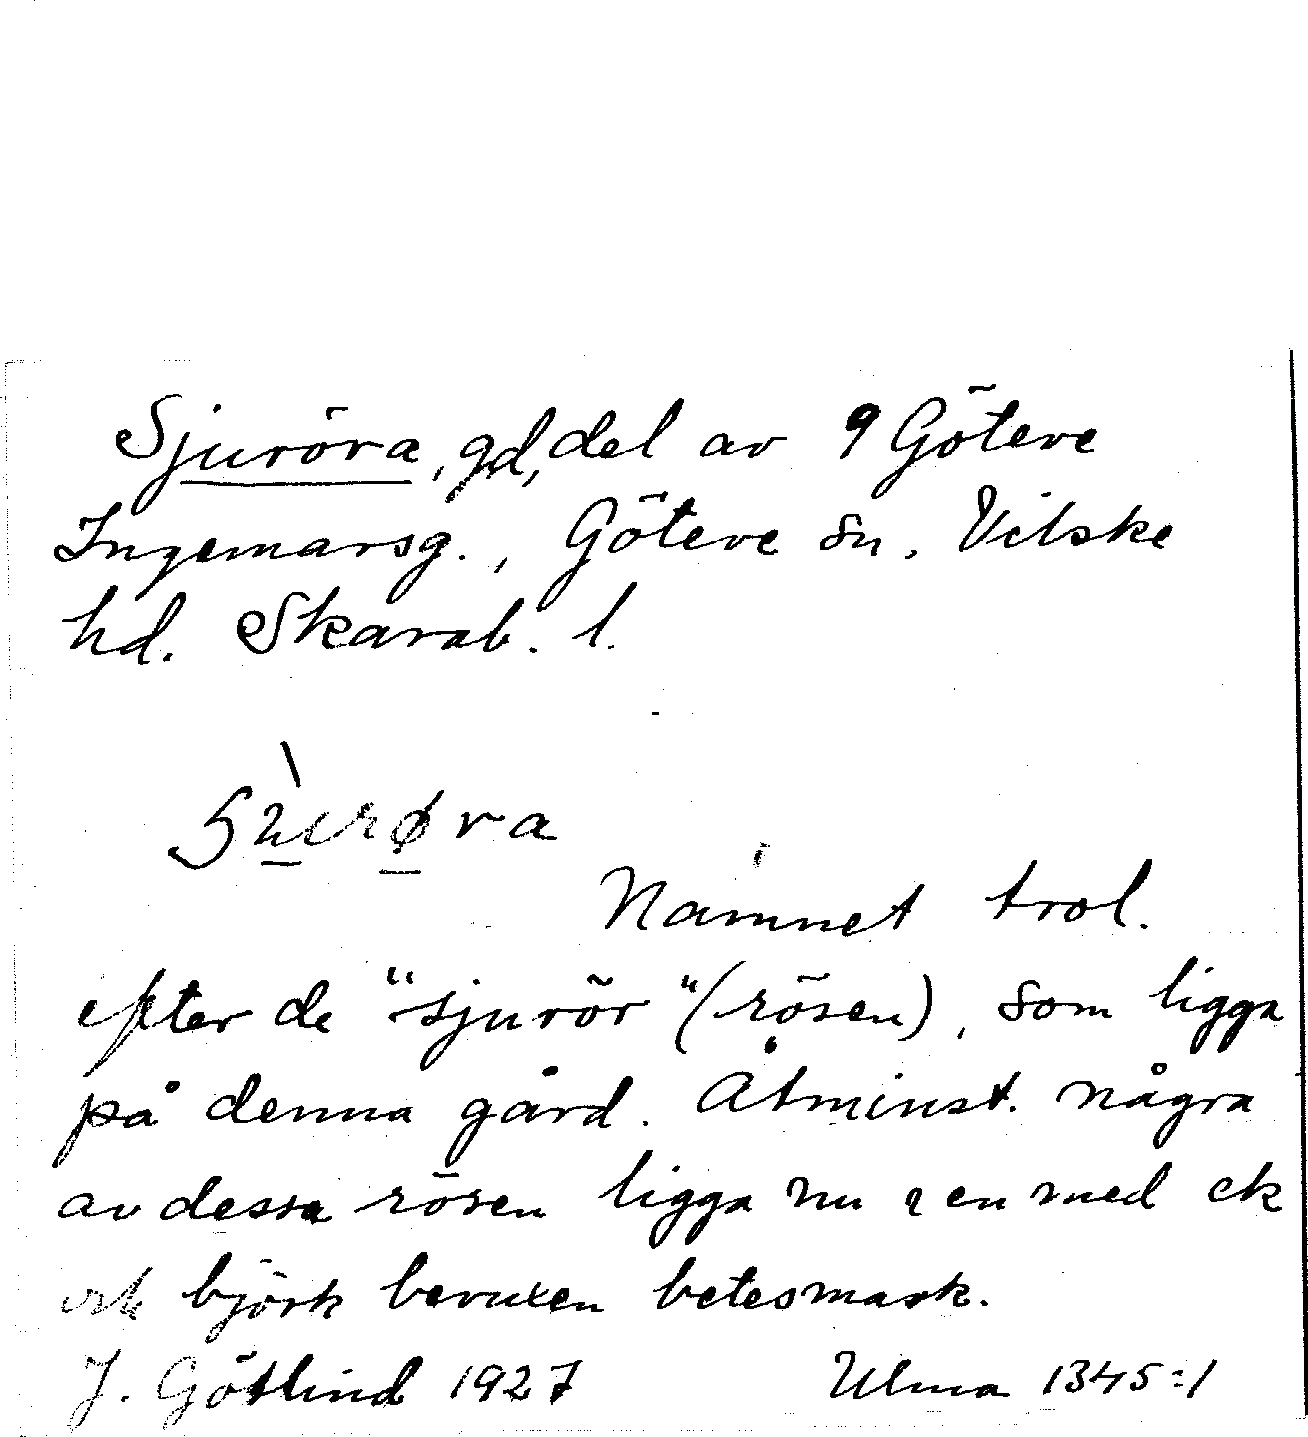 Sjuröra, gd, del av 9 Göteve
Ingemarsg., Göteve sn. Vilske
hd. Skarab. l.
Namnet trol.
efter de "sjurör" (rösen), som ligga
på denna gård. Åtminst. några
av dessa rösen ligga nu i en med ek
och björk bevuxen betesmark.
J. Götlind 1927 Ulma 1345:1